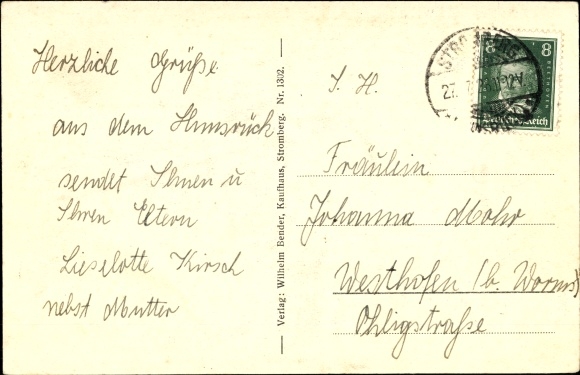 Herzliche Grüße
aus dem Hunsrück
sendet Ihnen u
Ihren Eltern
Lieselotte Kirsch
nebst Mutter
Verlag: Wilhelm Bender, Kaufhaus, Stromberg. Nr. 1302.
S. H.
Fräulein
Johanna Mohr
Westhofen (b. Worms)
Ohligstraße
STROMBERG
27.
8 8
BEETHOVEN
Deutsches Reich